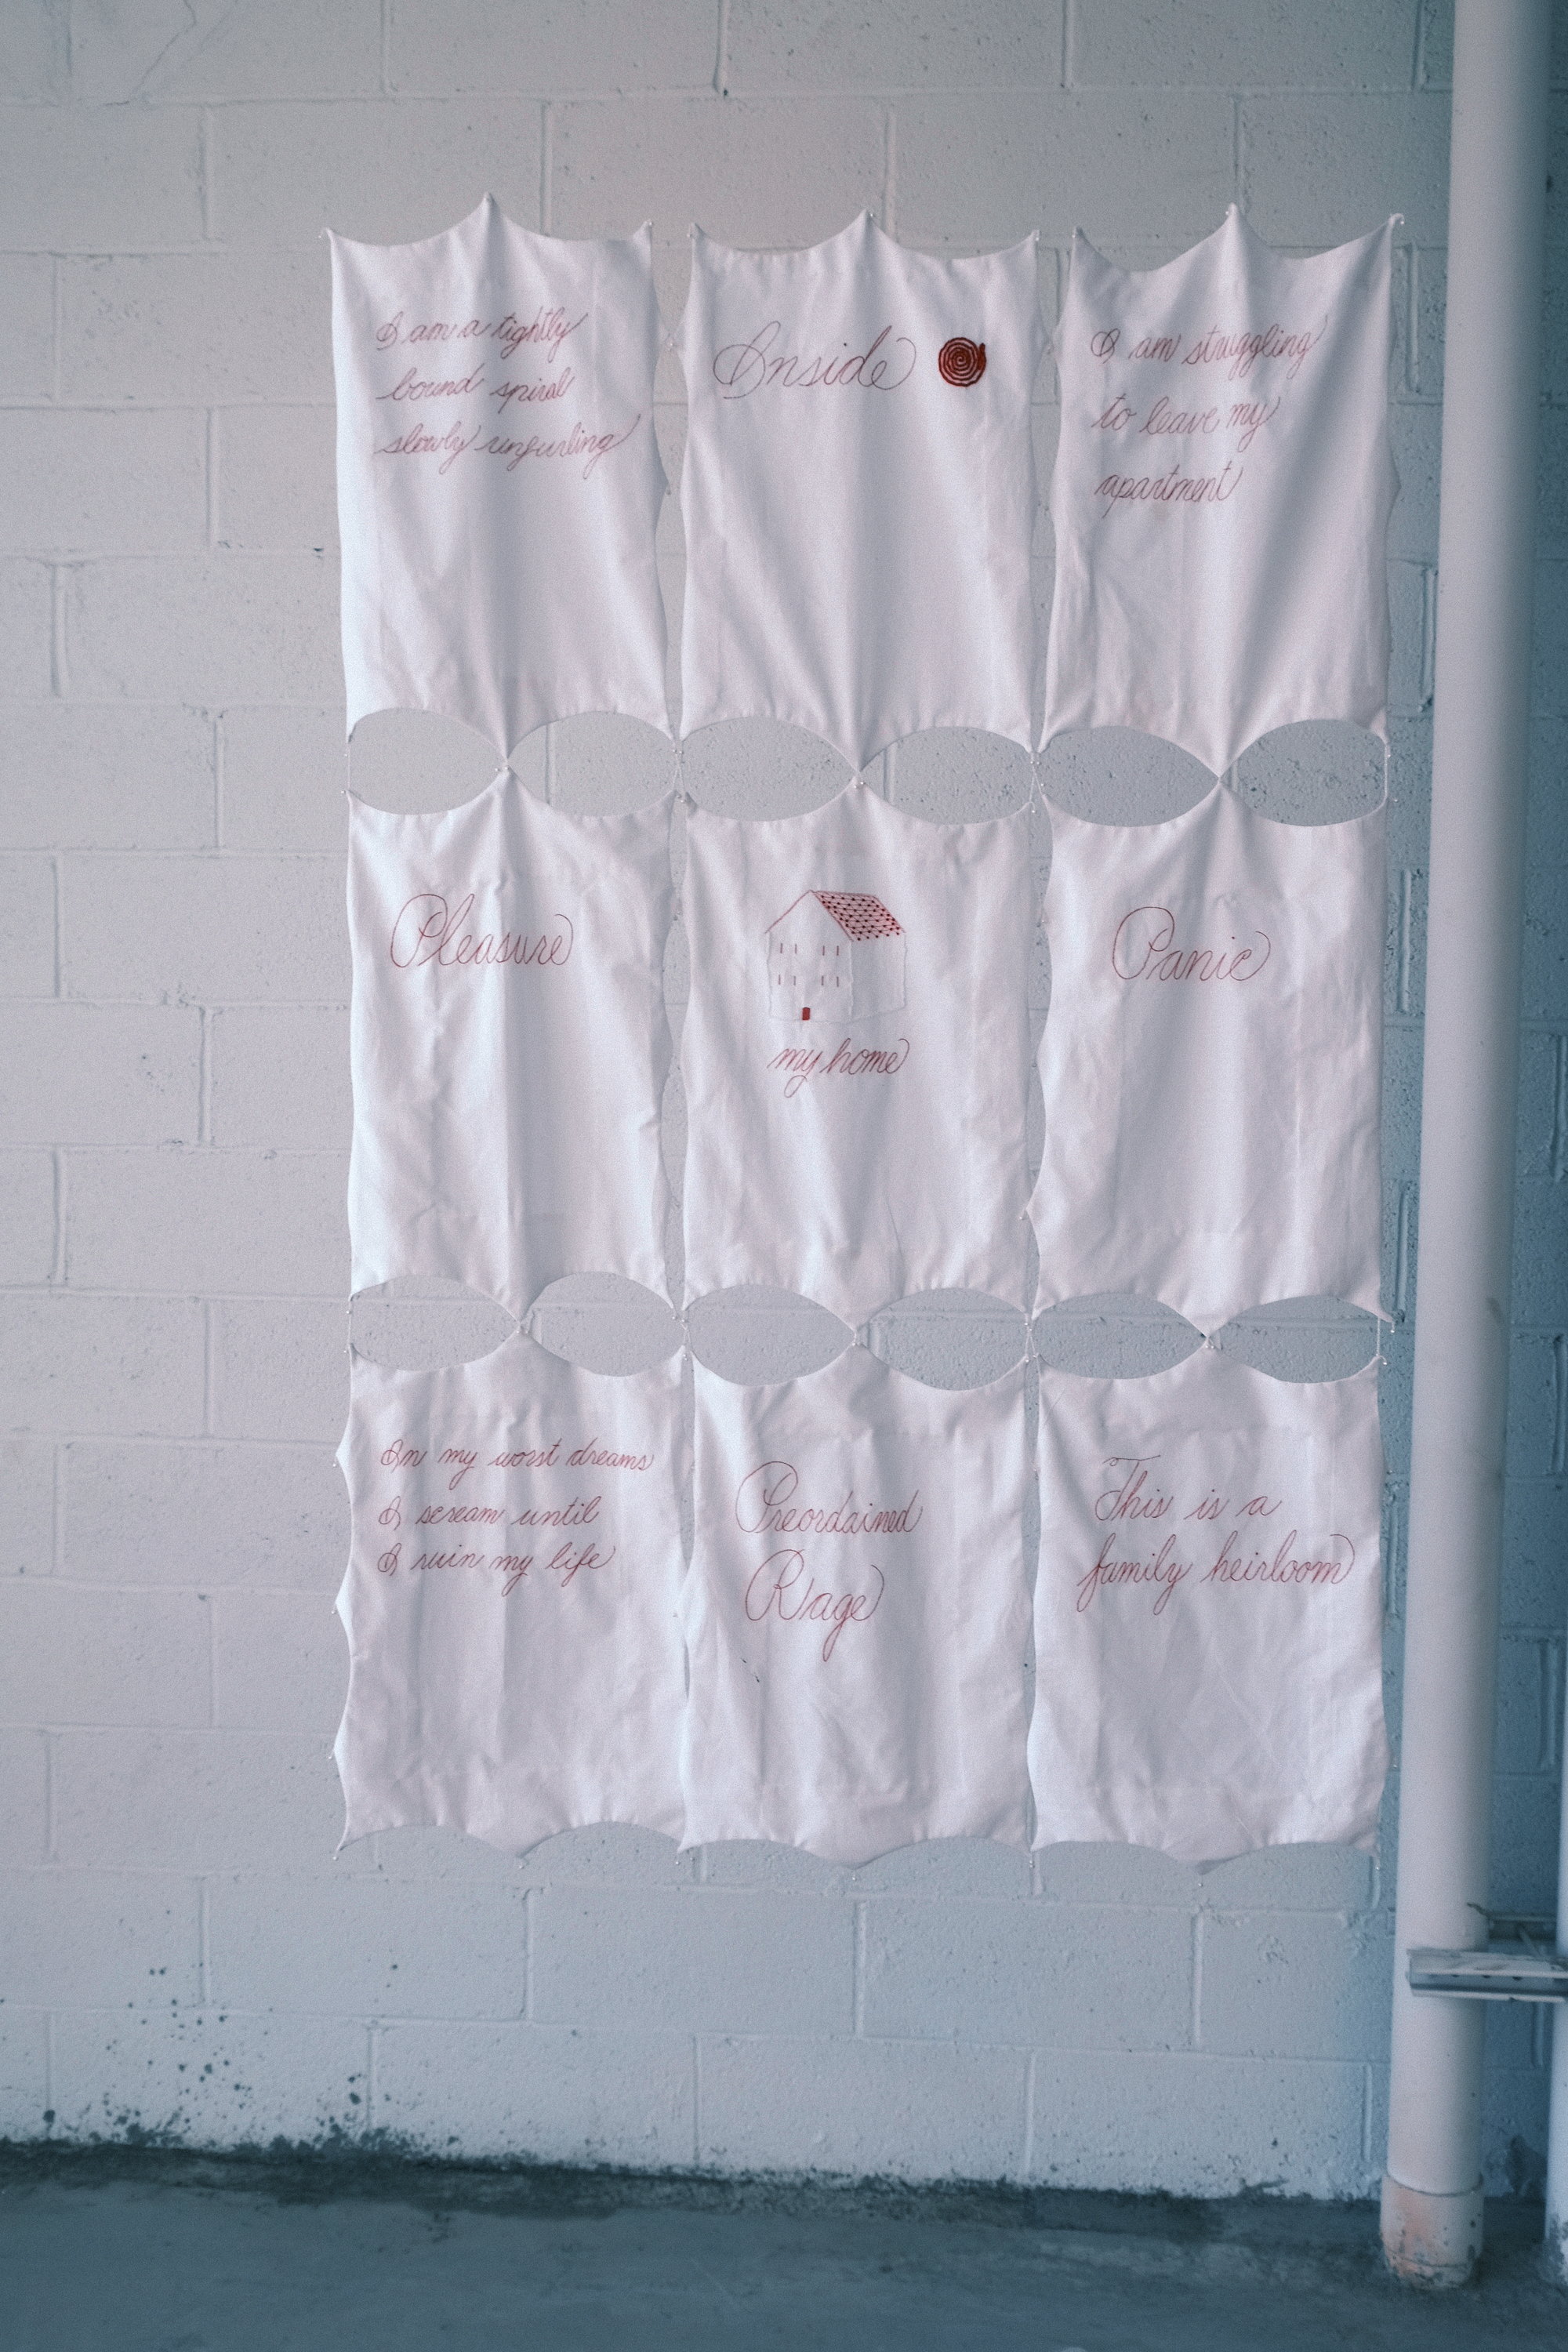 I am a tightly
bound spiral
slowly unfurling
Inside
I am struggling
to leave my
apartment
Pleasure
my home
Panic
In my worst dreams
I scream until
I ruin my life
Preordained
Rage
This is a
family heirloom